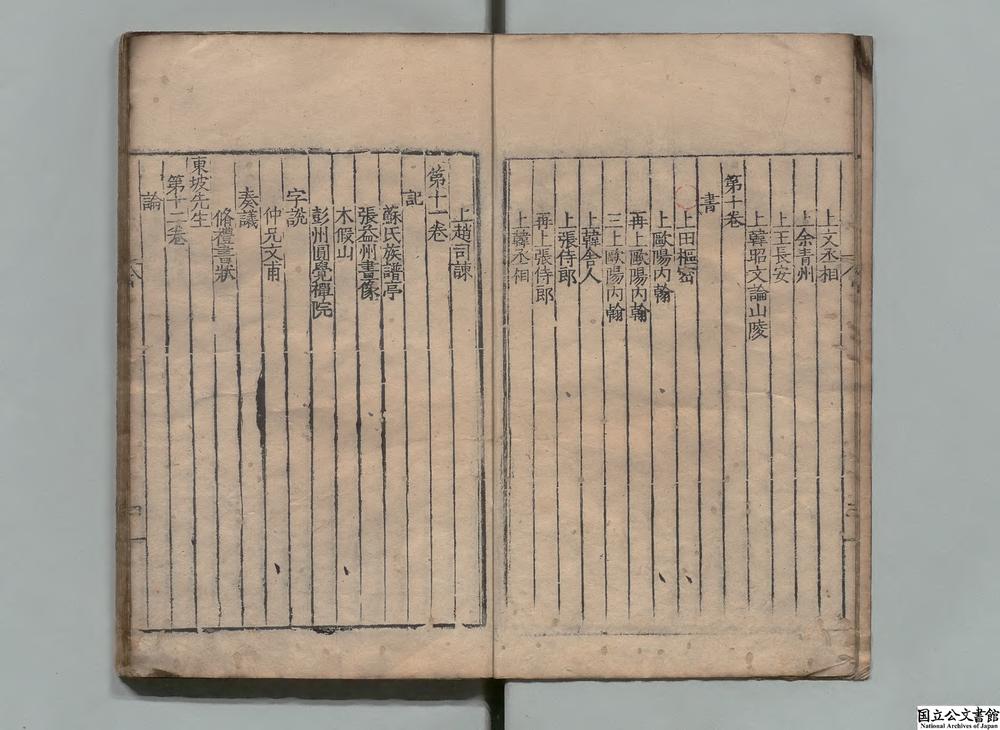 上文丞相
上余青州
上王長安
上韓昭文論山陵
第十卷
書
上田樞密
上歐陽内翰
再上歐陽内翰
三上歐陽内翰
上韓舍人
上張侍郎
再上張侍郎
上韓丞相
上趙司諫
第十一卷
記
蘇氏族譜亭
張益州畫像
木假山
彭州圓覺禪院
字說
仲兄文甫
奏議
脩禮書狀
東坡先生
第十二卷
論
国立公文書館
National Archives of Japan